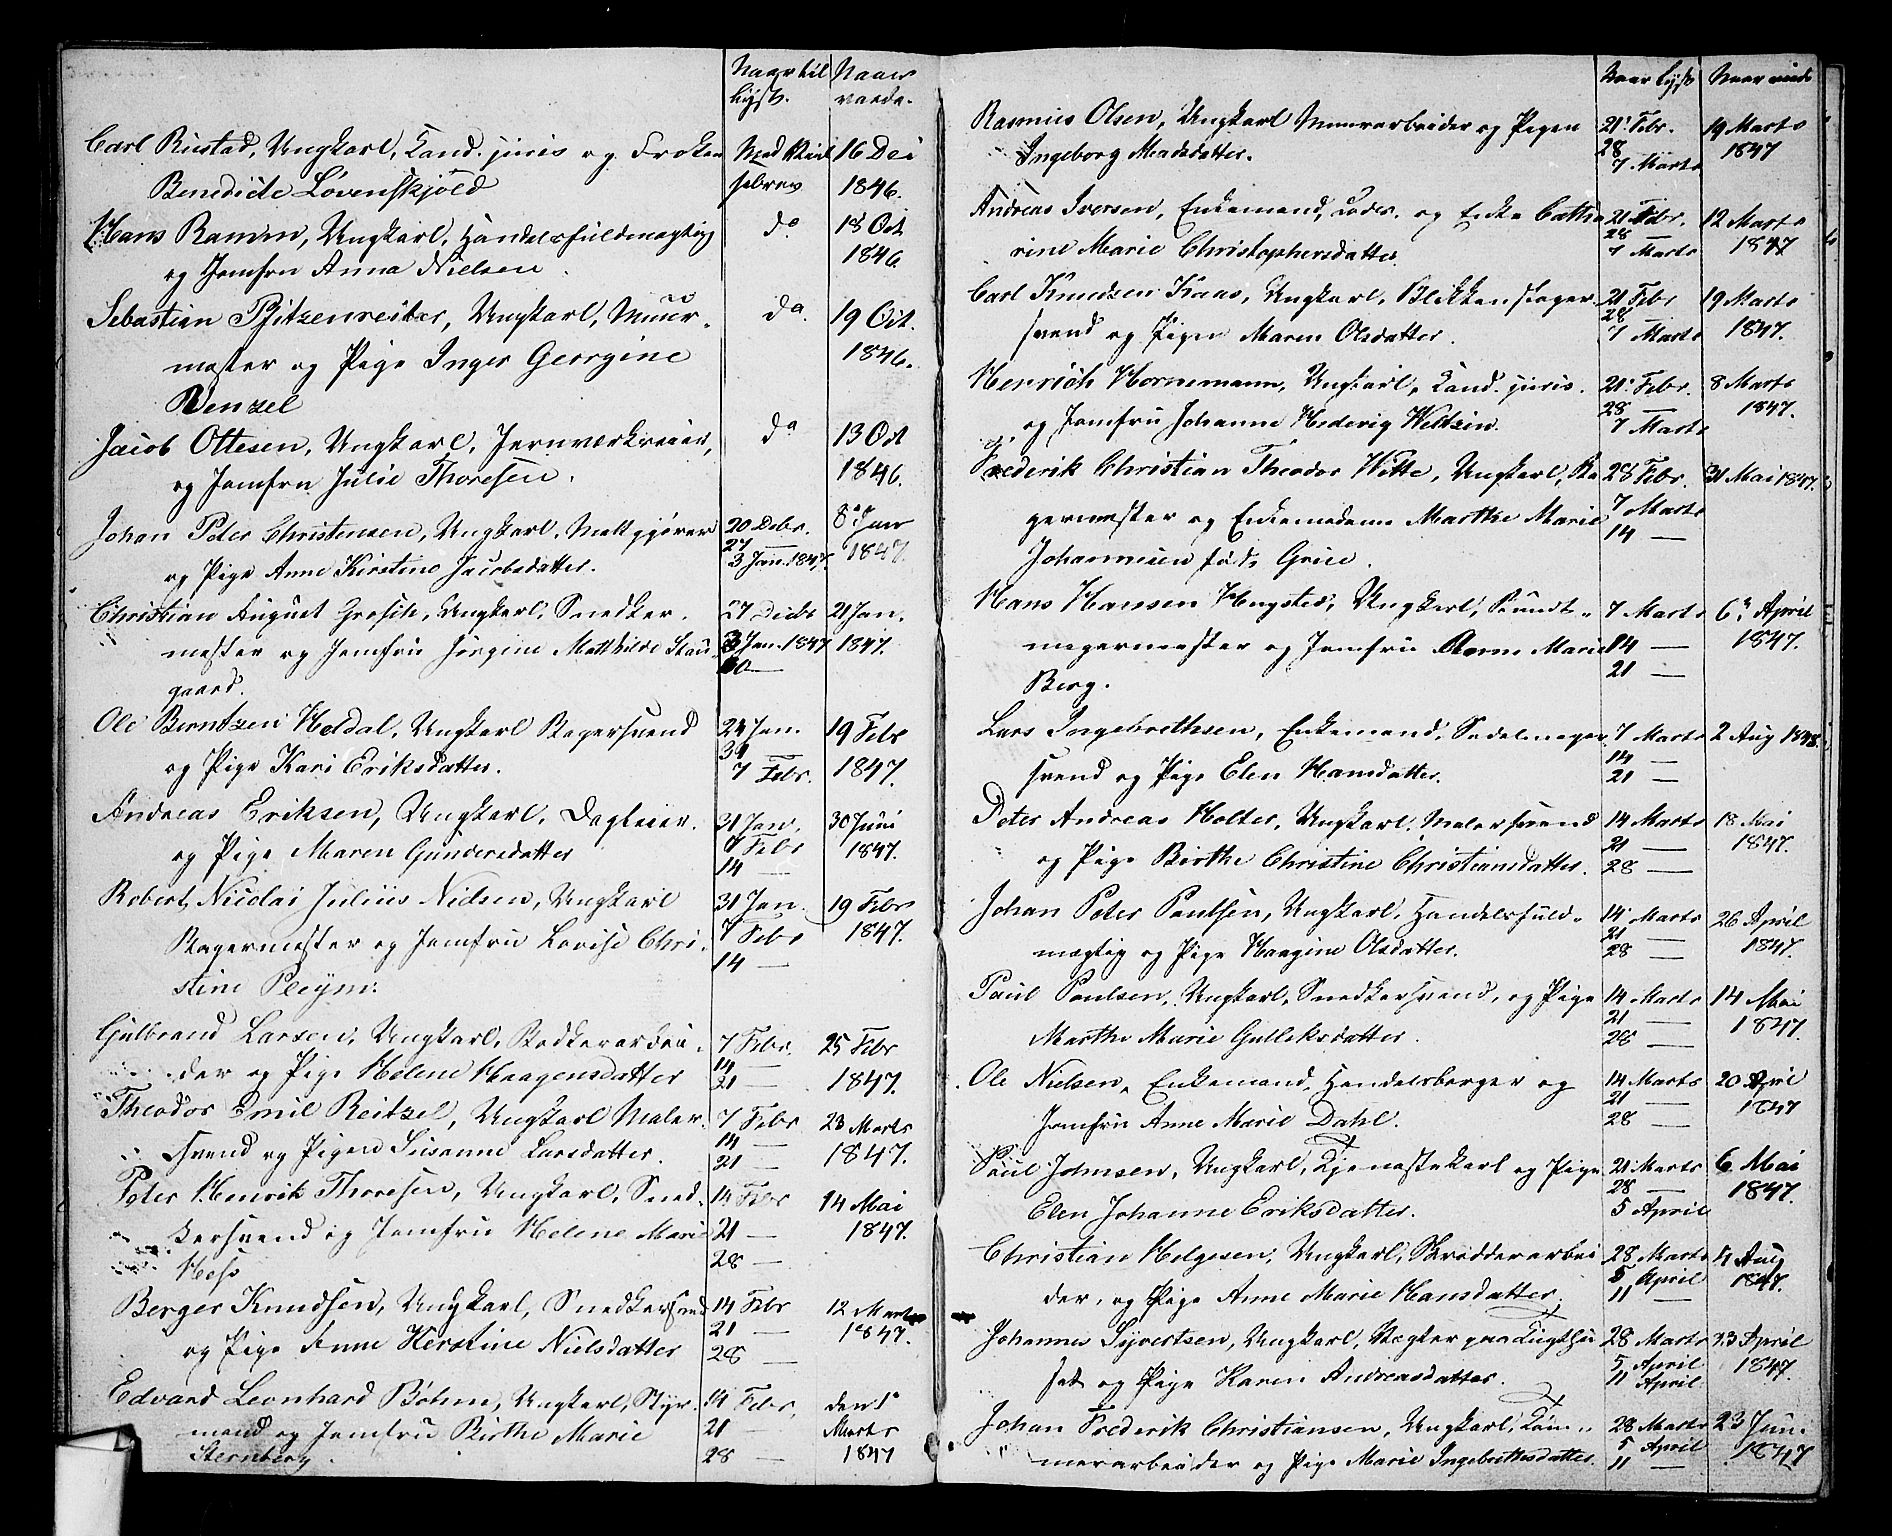 Naar til Naar
lyst. viede.
Carl Rustad, Ungkarl, Cand. juris og Frøken Med Kiel 16 Dec
Benedicte Løvenskjold sebrev 1846.
Hans Ramm, Ungkarl, Handelsfuldmægtig do 18 Oct
og Jomfru Anna Nielsen. 1846.
Sebastian Ungkarl, Muur- do. 19 Oct.
mester og Pige Inger Georgine 1846.
Wenzel
Jacob Ottesen, Ungkarl, Jernværkseier, do 13 Oct
og Jomfru Julie Thoresen. 1846.
Johan Peter Christensen, Ungkarl, 20 Debr. 8de Jan
27 — 1847.
og Pige Anne Kirstine Jacobsdatter. 3 Jan. 1847.
Christian August Grosch, Ungkarl, Snedker- 27 Decbr 21 Jan.
mester og Jomfru Jørgine Matthilde Stau- 3 Jan. 1847 1847.
gaard. 10 —
Ole Berntzen Heldal, Ungkarl Bagersvend 24 Jan. 19 Febr
31
og Pige Kari Eriksdatter. 7 Febr. 1847.
Andreas Eriksen, Ungkarl, Dagleier. 31 Jan. 30 Juni
og Pige Maren Gundersdatter 7 Febr 1847.
14 —
Robert Nicolai Julius Nielsen, Ungkarl 31 Jan. 19 Febr
Bagermester og Jomfru Lovise Chri- 7 Febr 1847.
stine Pleym. 14 —
Gulbrand Larsen, Ungkarl, 7 Febr. 25 Febr
14 —
der og Pige Helene Haagensdatter 21 — 1847.
Theodor Emil Reitzel, Ungkarl Maler- 7 Febr 23 Marts
14 —
svend og Pigen Susanne Larsdatter. 21 — 1847.
Peter Henrik Thoresen, Ungkarl, Sned- 14 Febr 14 Mai
kersvend og Jomfru Helene Marie 21 — 1847.
Hess 28 —
Berger Knudsen, Ungkarl, Snedkersvend 14 Febr 12 Marts
21 — 1847.
og Pige Anne Kerstine Nielsdatter 28 —
Edvard Leonhard Bøhme, Ungkarl, Styr- 14 Febr. den 1ste
mand og Jomfru Birthe Marie 21 — Marts
Sternberg. 28 — 1847
Naar lyst Naar viede
Rasmus Olsen, Ungkarl Muurarbeider og Pigen 21. Febr. 19 Marts
28 1847
Ingeborg Madsdatter. 7 Marts
Andreas Iversen, Enkemand, Lods. og Enke Catha 21 Febr. 12 Marts
28 —
rine Marie Christophersdatter. 7 Marts 1847
Carl Knudsen Kaas, Ungkarl, Blikkenslager- 21 Febr 19 Marts
28
svend og Pigen Maren Olsdatter. 7 Marts 1847.
Henrich Hornemann, Ungkarl, Cand. juris. 21. Febr. 8 Marts
28 — 1847.
og Jomfru Johanne Hedevig Weltzin. 7 Marts
Frederik Christian Theodor Witte, Ungkarl, Ba 28 Febr. 31 Mai 1847.
germester og Enkemadame Marthe Marie 7 Marts
Johannesen født Grüe. 14 —
Hans Hansen Hugsted, Ungkarl, Bundt- 7 Marts 6te April
magermester og Jomfru Anne Marie 14 — 1847.
Berg. 21 —
Lars Ingebrethsen, Enkemand, Sadelmager- 7 Marts 2 Aug 1848.
14 —
svend og Pige Elen Hansdatter. 21 —
Peter Andreas Holter, Ungkarl, Malersvend 14 Marts 18 Mai
21 — 1847.
og Pige Birthe Christine Christiansdatter. 28 —
Johan Peter Paulsen, Ungkarl, Handelsfuld- 14 Marts 26 April
21 —
mægtig og Pige Haagine Olsdatter. 28 — 1847.
Paul Paulsen, Ungkarl, Snedkersvend, og Pige 14 Marts 14 Mai
21 —
Marthe Marie Gulleksdatter. 28 — 1847.
Ole Nielsen, Enkemand, Handelsborger og 14 Marts 20 April
21 —
Jomfru Anne Marie Dahl. 28 — 1847
Paul Johnsen, Ungkarl, Tjenestekarl og Pige 21 Marts 6 Mai
28 — 1847.
Elen Johanne Eriksdatter. 5 April
Christian Helgesen, Ungkarl, Skrædderarbei 28 Marts 4 Aug
5 April 1847.
der, og Pige Anne Marie Hansdatter. 11 —
Johannes Syvertsen, Ungkarl, Vægter paa Tugthu 28 Marts 23 April
5 April 1847.
set og Pige Karen Andreasdatter. 11 April
Johan Frederik Christiansen, Ungkarl, Tøm- 28 Marts 23 Jun.
5 April
merarbeider og Pige Marie Ingebrethsdatter. 11 — 1847